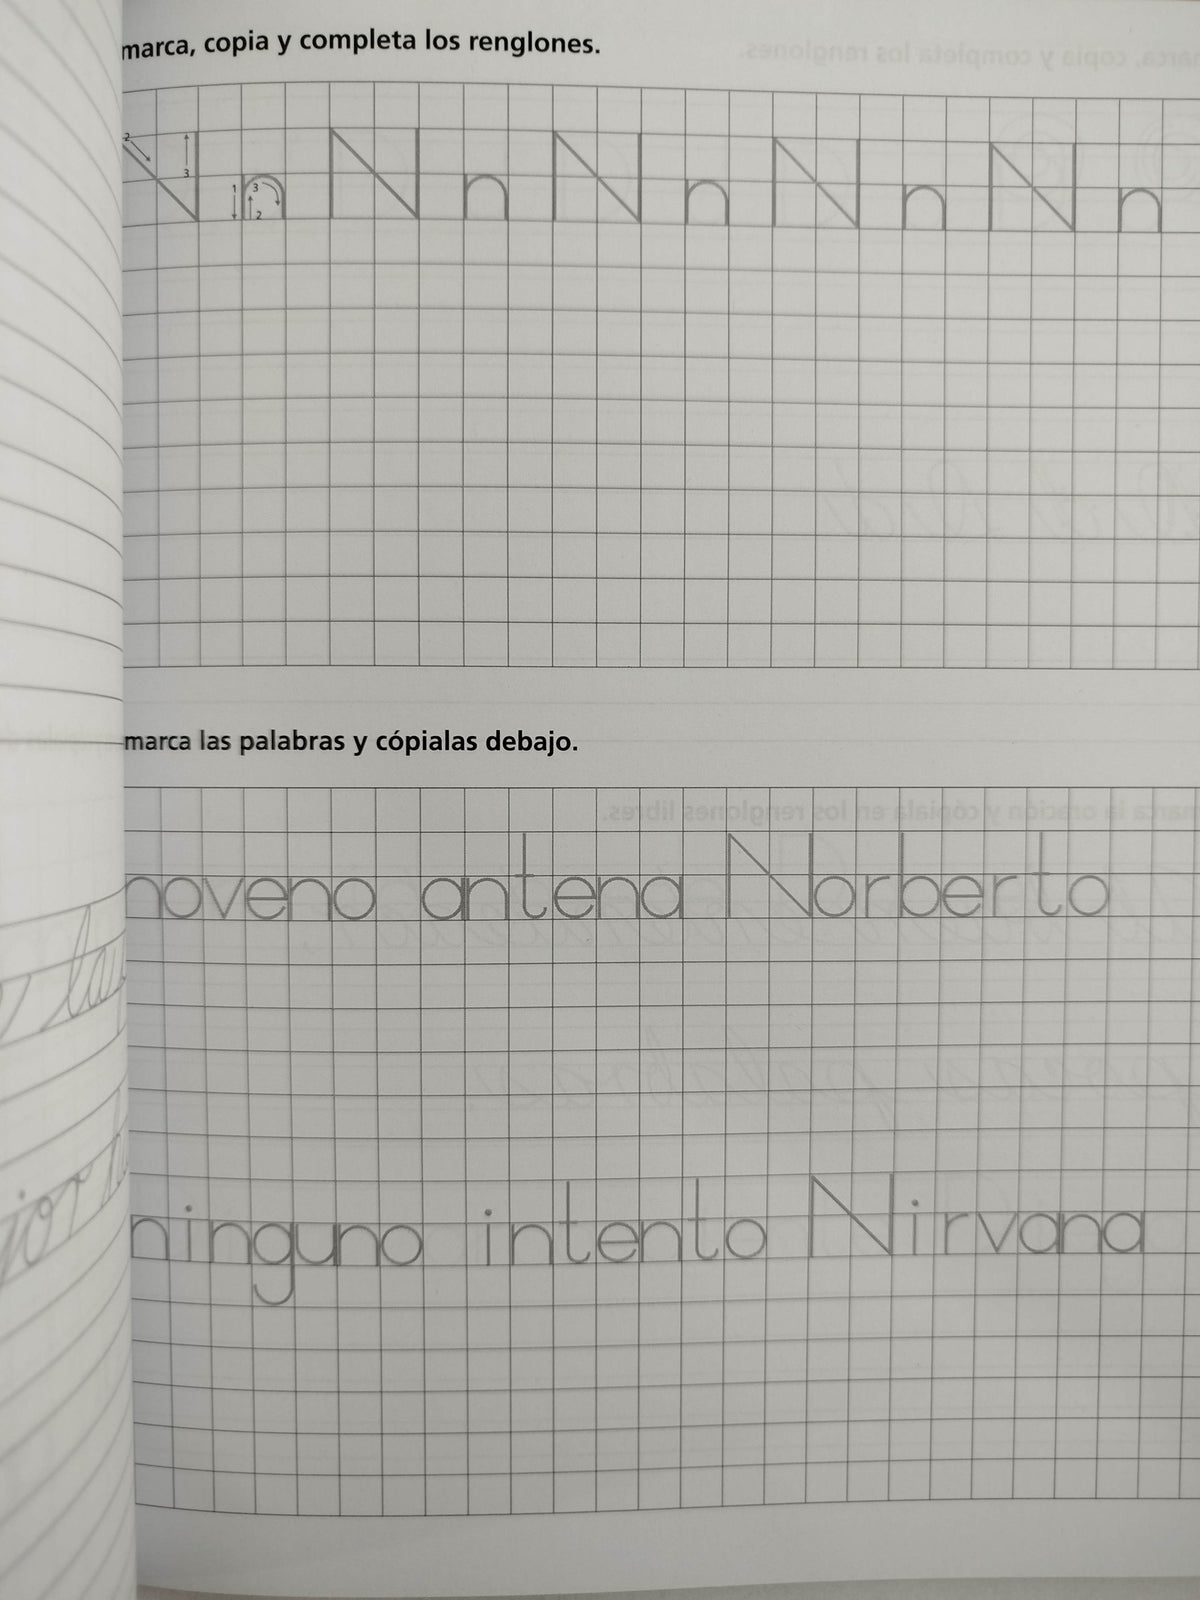 marca, copia y completa los renglones.
2 3 N 1 3 2 n N n N n N n N n
marca las palabras y cópialas debajo.
noveno antena Norberto
ninguno intento Nirvana